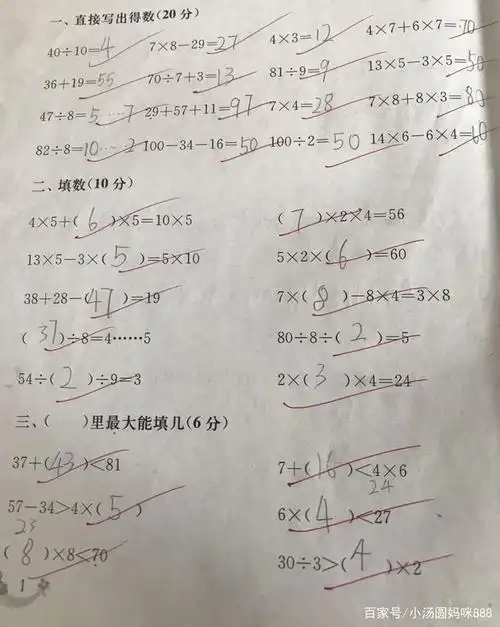 一、直接写出得数(20分)
40÷10=4 7×8-29=27 4×3=12 4×7+6×7=70
36+19=55 70÷7+3=13 81÷9=9 13×5-3×5=50
47÷8=5…7 29+57+11=97 7×4=28 7×8+8×3=80
82÷8=10…2 100-34-16=50 100÷2=50 14×6-6×4=60
二、填数(10分)
4×5+(6)×5=10×5 (7)×2×4=56
13×5-3×(5)=5×10 5×2×(6)=60
38+28-(47)=19 7×(8)-8×4=3×8
(37)÷8=4……5 80÷8÷(2)=5
54÷(2)÷9=3 2×(3)×4=24
三、( )里最大能填几(6分)
37+(43)<81 7+(16)<4×6
24
57-34>4×(5) 6×(4)<27
23
(8)×8<70 30÷3>(4)×2
1
百家号/小汤圆妈咪888